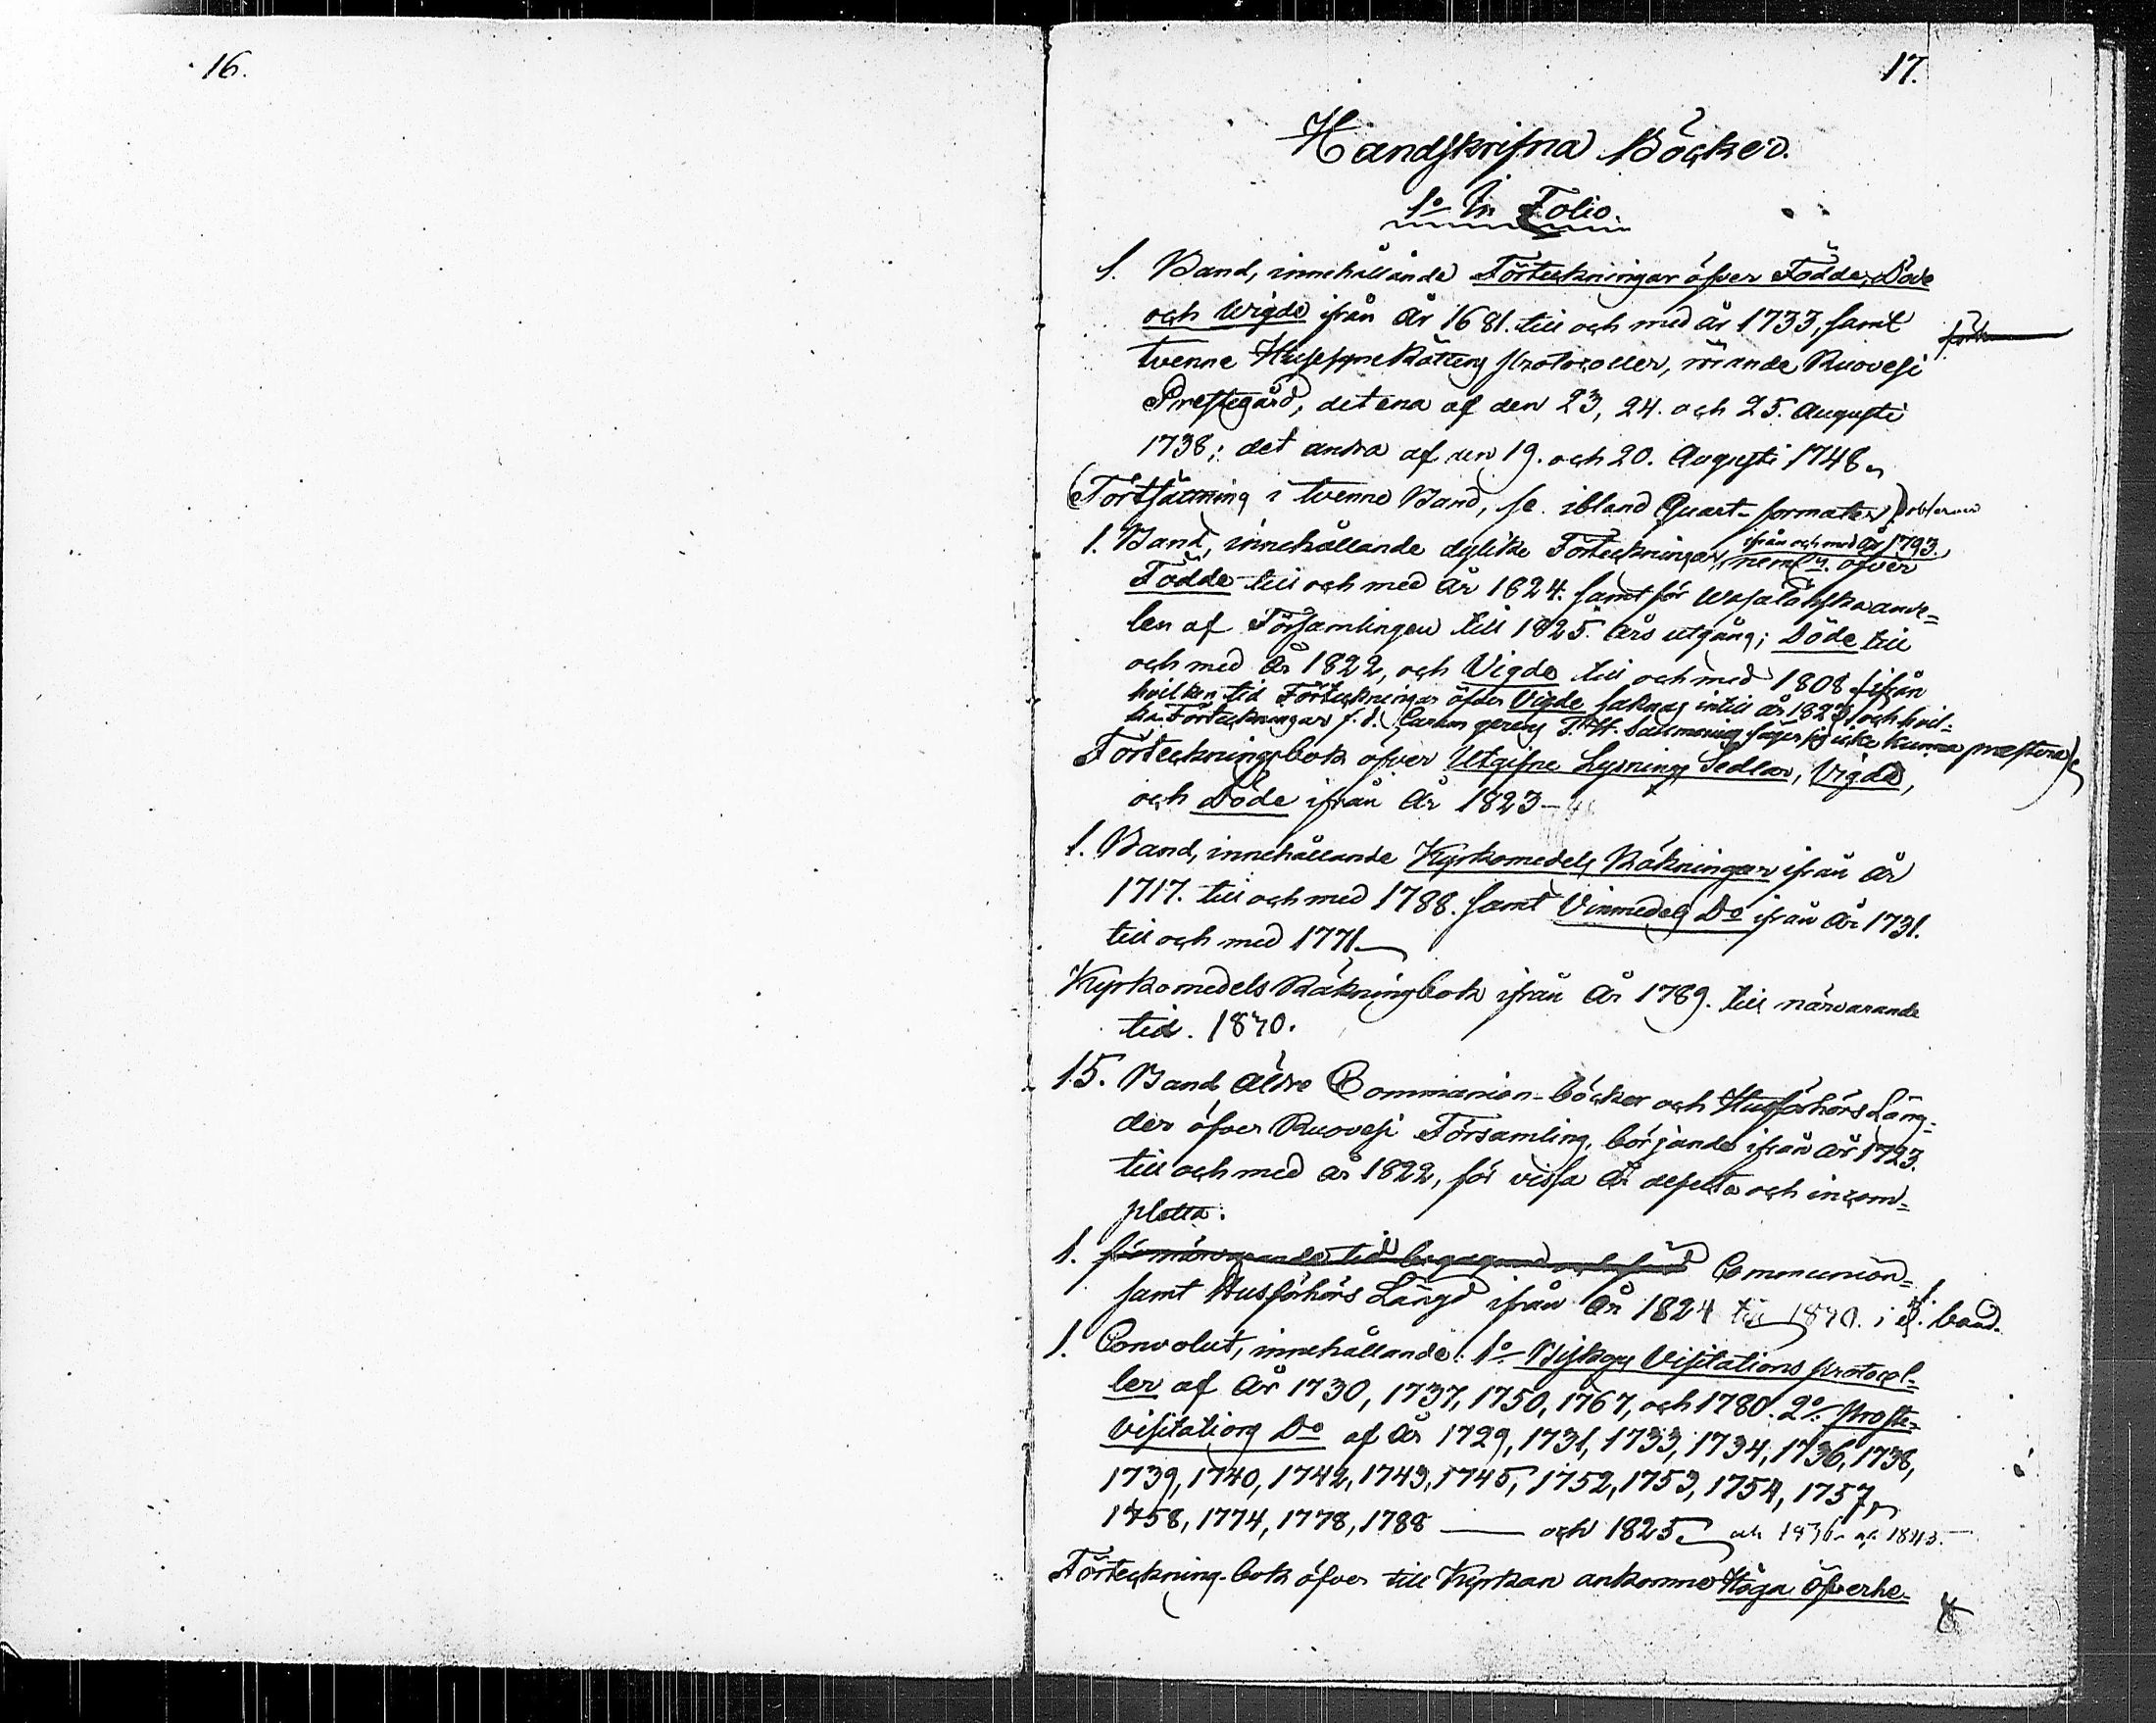 16.
17.
Handskrifna Böcker.
1o In Folio.
1. Band, innehållande Förteckningar öfver Födde, Döde
och Wigde ifrån År 1681. till och med år 1733, samt
tvenne Husesyne Rättens Protocoller, rörande Ruovesi
Prestegård, det ena af den 23, 24. och 25. Augusti
1738; det andra af den 19. och 20. Augusti 1748.
(Fortsättning i tvenne Band, se ibland Quart-formater)
1. Band, innehållande dylika Förteckningar, ifrån och med År 1793.,
neml. öfver
Födde till och med År 1824. samt för Wasa ande=
len af Församlingen till 1825. års utgång; Döde till
och med År 1822, och Vigde till och med 1808 (ifrån
hvilken tid Förteckningar öfver Vigde saknas intill år 1823, och hvil=
ka Förteckningar f. d. T. H. Salmenius säger sig icke kunna prestera)
Förteckningsbok öfver Utgifne Lysnings Sedlar, Vigde,
och Döde ifrån År 1823-
1. Band, innehållande Kyrkomedels Räkningar ifrån År
1717. till och med 1788. samt Vinmedels Do ifrån År 1731.
till och med 1771.
Kyrkomedels Räkningbok ifrån År 1789. till närvarande
tid. 1870.
15. Band äldre Communion-böcker och Husförhörs Läng=
der öfver Ruovesi Församling, börjande ifrån År 1723.
till och med år 1822, för vissa År defecta och incom=
pletta.
1. för närvarande tid begagnad Communion=
samt Husförhörs Längd ifrån År 1824 till 1870. i band.
1. Convolut, innehållande: 1o Biskops Visitations Protocol=
ler af År 1730, 1737, 1750, 1767, och 1780. 2o Proste=
Visitations Do af År 1729, 1731, 1733, 1734, 1736, 1738,
1739, 1740, 1742, 1743, 1745, 1752, 1753, 1754, 1757,
1758, 1774, 1778, 1788 — och 1825 och 1836 och 1843.
Förteckning-bok öfver till Kyrkan ankomne Höga Öfverhe=